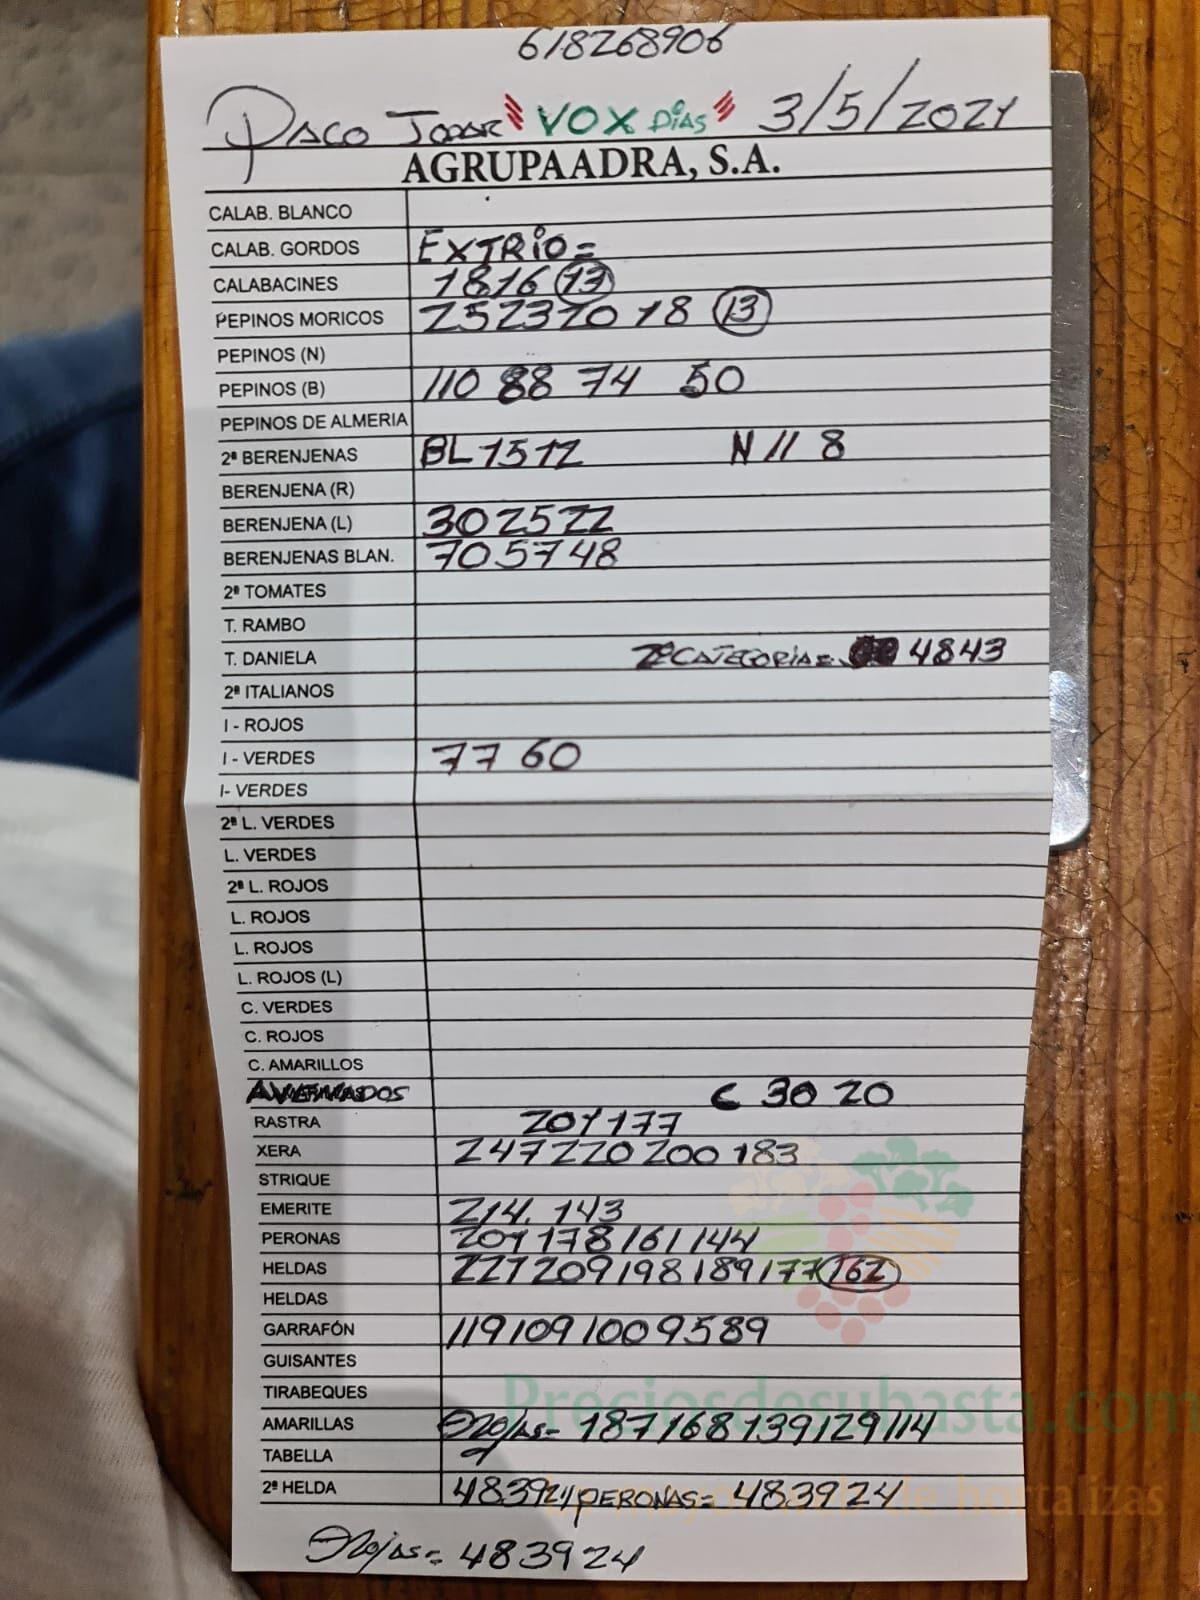 618268906
PACO JODAR "VOX Días" 3/5/2021
AGRUPAADRA, S.A.
CALAB. BLANCO
CALAB. GORDOS EXTRIO=
CALABACINES 1816 13
PEPINOS MORICOS 252320 18 13
PEPINOS (N)
PEPINOS (B) 110 88 74 50
PEPINOS DE ALMERIA
2ª BERENJENAS BL 1512 N 11 8
BERENJENA (R)
BERENJENA (L) 302522
BERENJENAS BLAN. 705748
2ª TOMATES
T. RAMBO
T. DANIELA 2ª CATEGORIA= 4843
2ª ITALIANOS
I - ROJOS
I - VERDES 77 60
I- VERDES
2ª L. VERDES
L. VERDES
2ª L. ROJOS
L. ROJOS
L. ROJOS
L. ROJOS (L)
C. VERDES
C. ROJOS
C. AMARILLOS
AVENADOS C 30 20
RASTRA 201 177
XERA 247220200 183
STRIQUE
EMERITE 214. 143
PERONAS 201 178 161 144
HELDAS 227209198189177 162
HELDAS
GARRAFÓN 1191091009589
GUISANTES
TIRABEQUES
AMARILLAS Rojas= 187168139129114
TABELLA
2ª HELDA 483924 PERONAS= 483924
Rojas= 483924
Preciosdesubasta.com